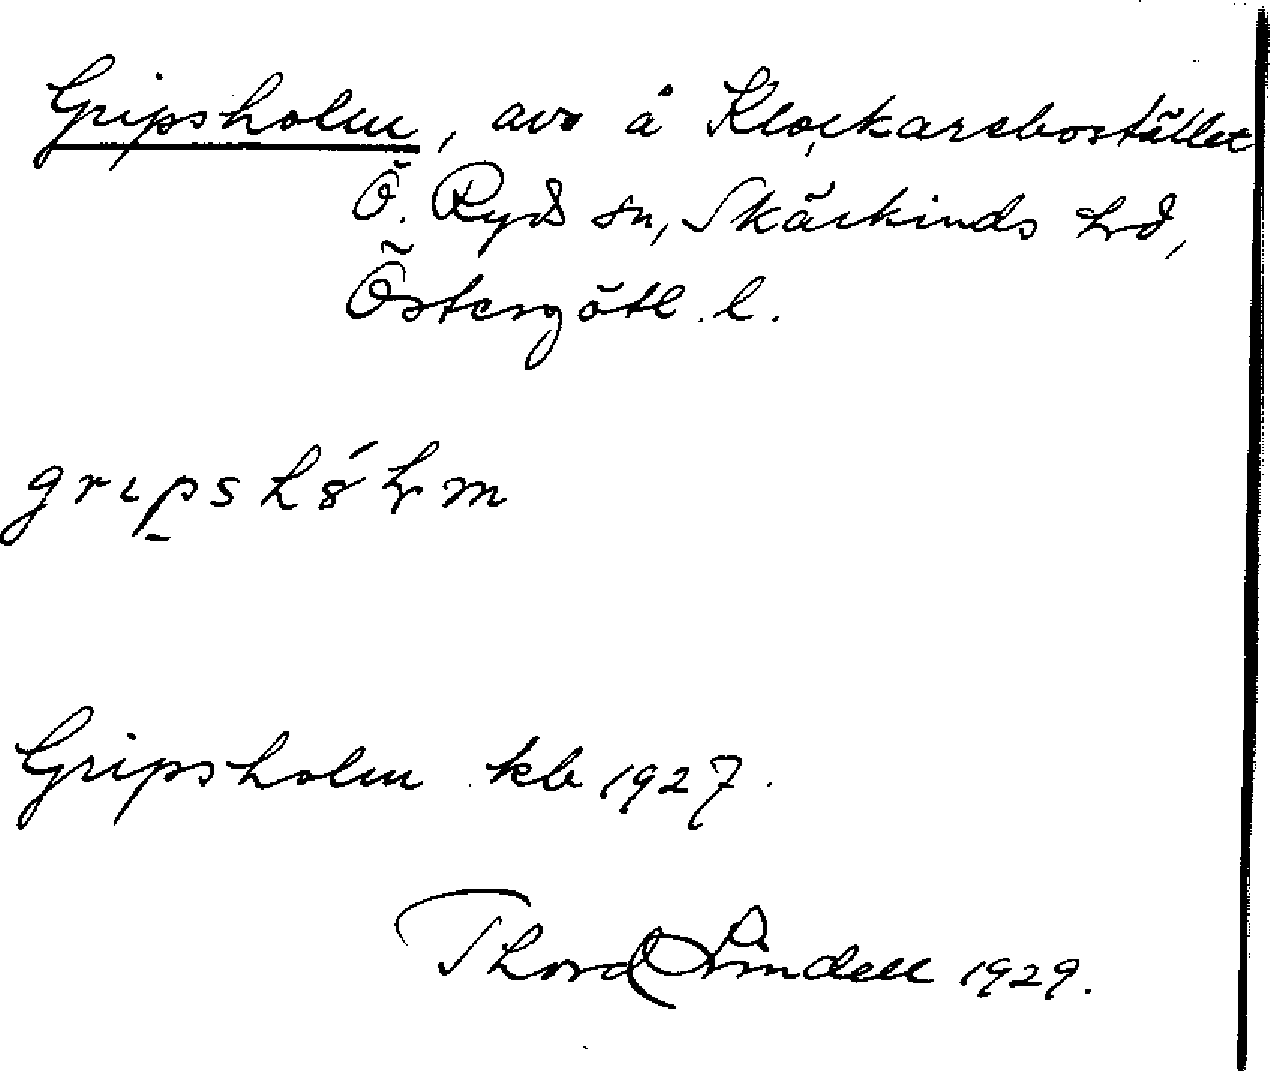 Gripsholm, avs å Klockarebostället
Ö. Ryds sn, Skärkinds hd,
Östergötl. l.
Gripsholm kb 1927.
Thord Lindell 1929.